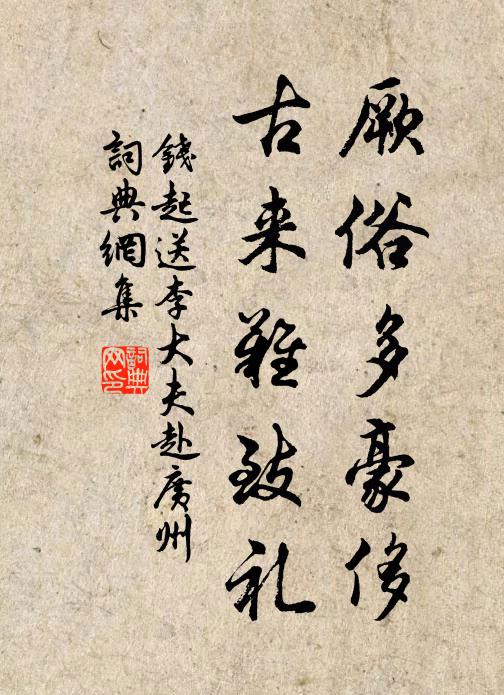 厥俗多豪侈
古来難致礼
錢起送李大夫赴廣州
詞典網集
詞典
网印